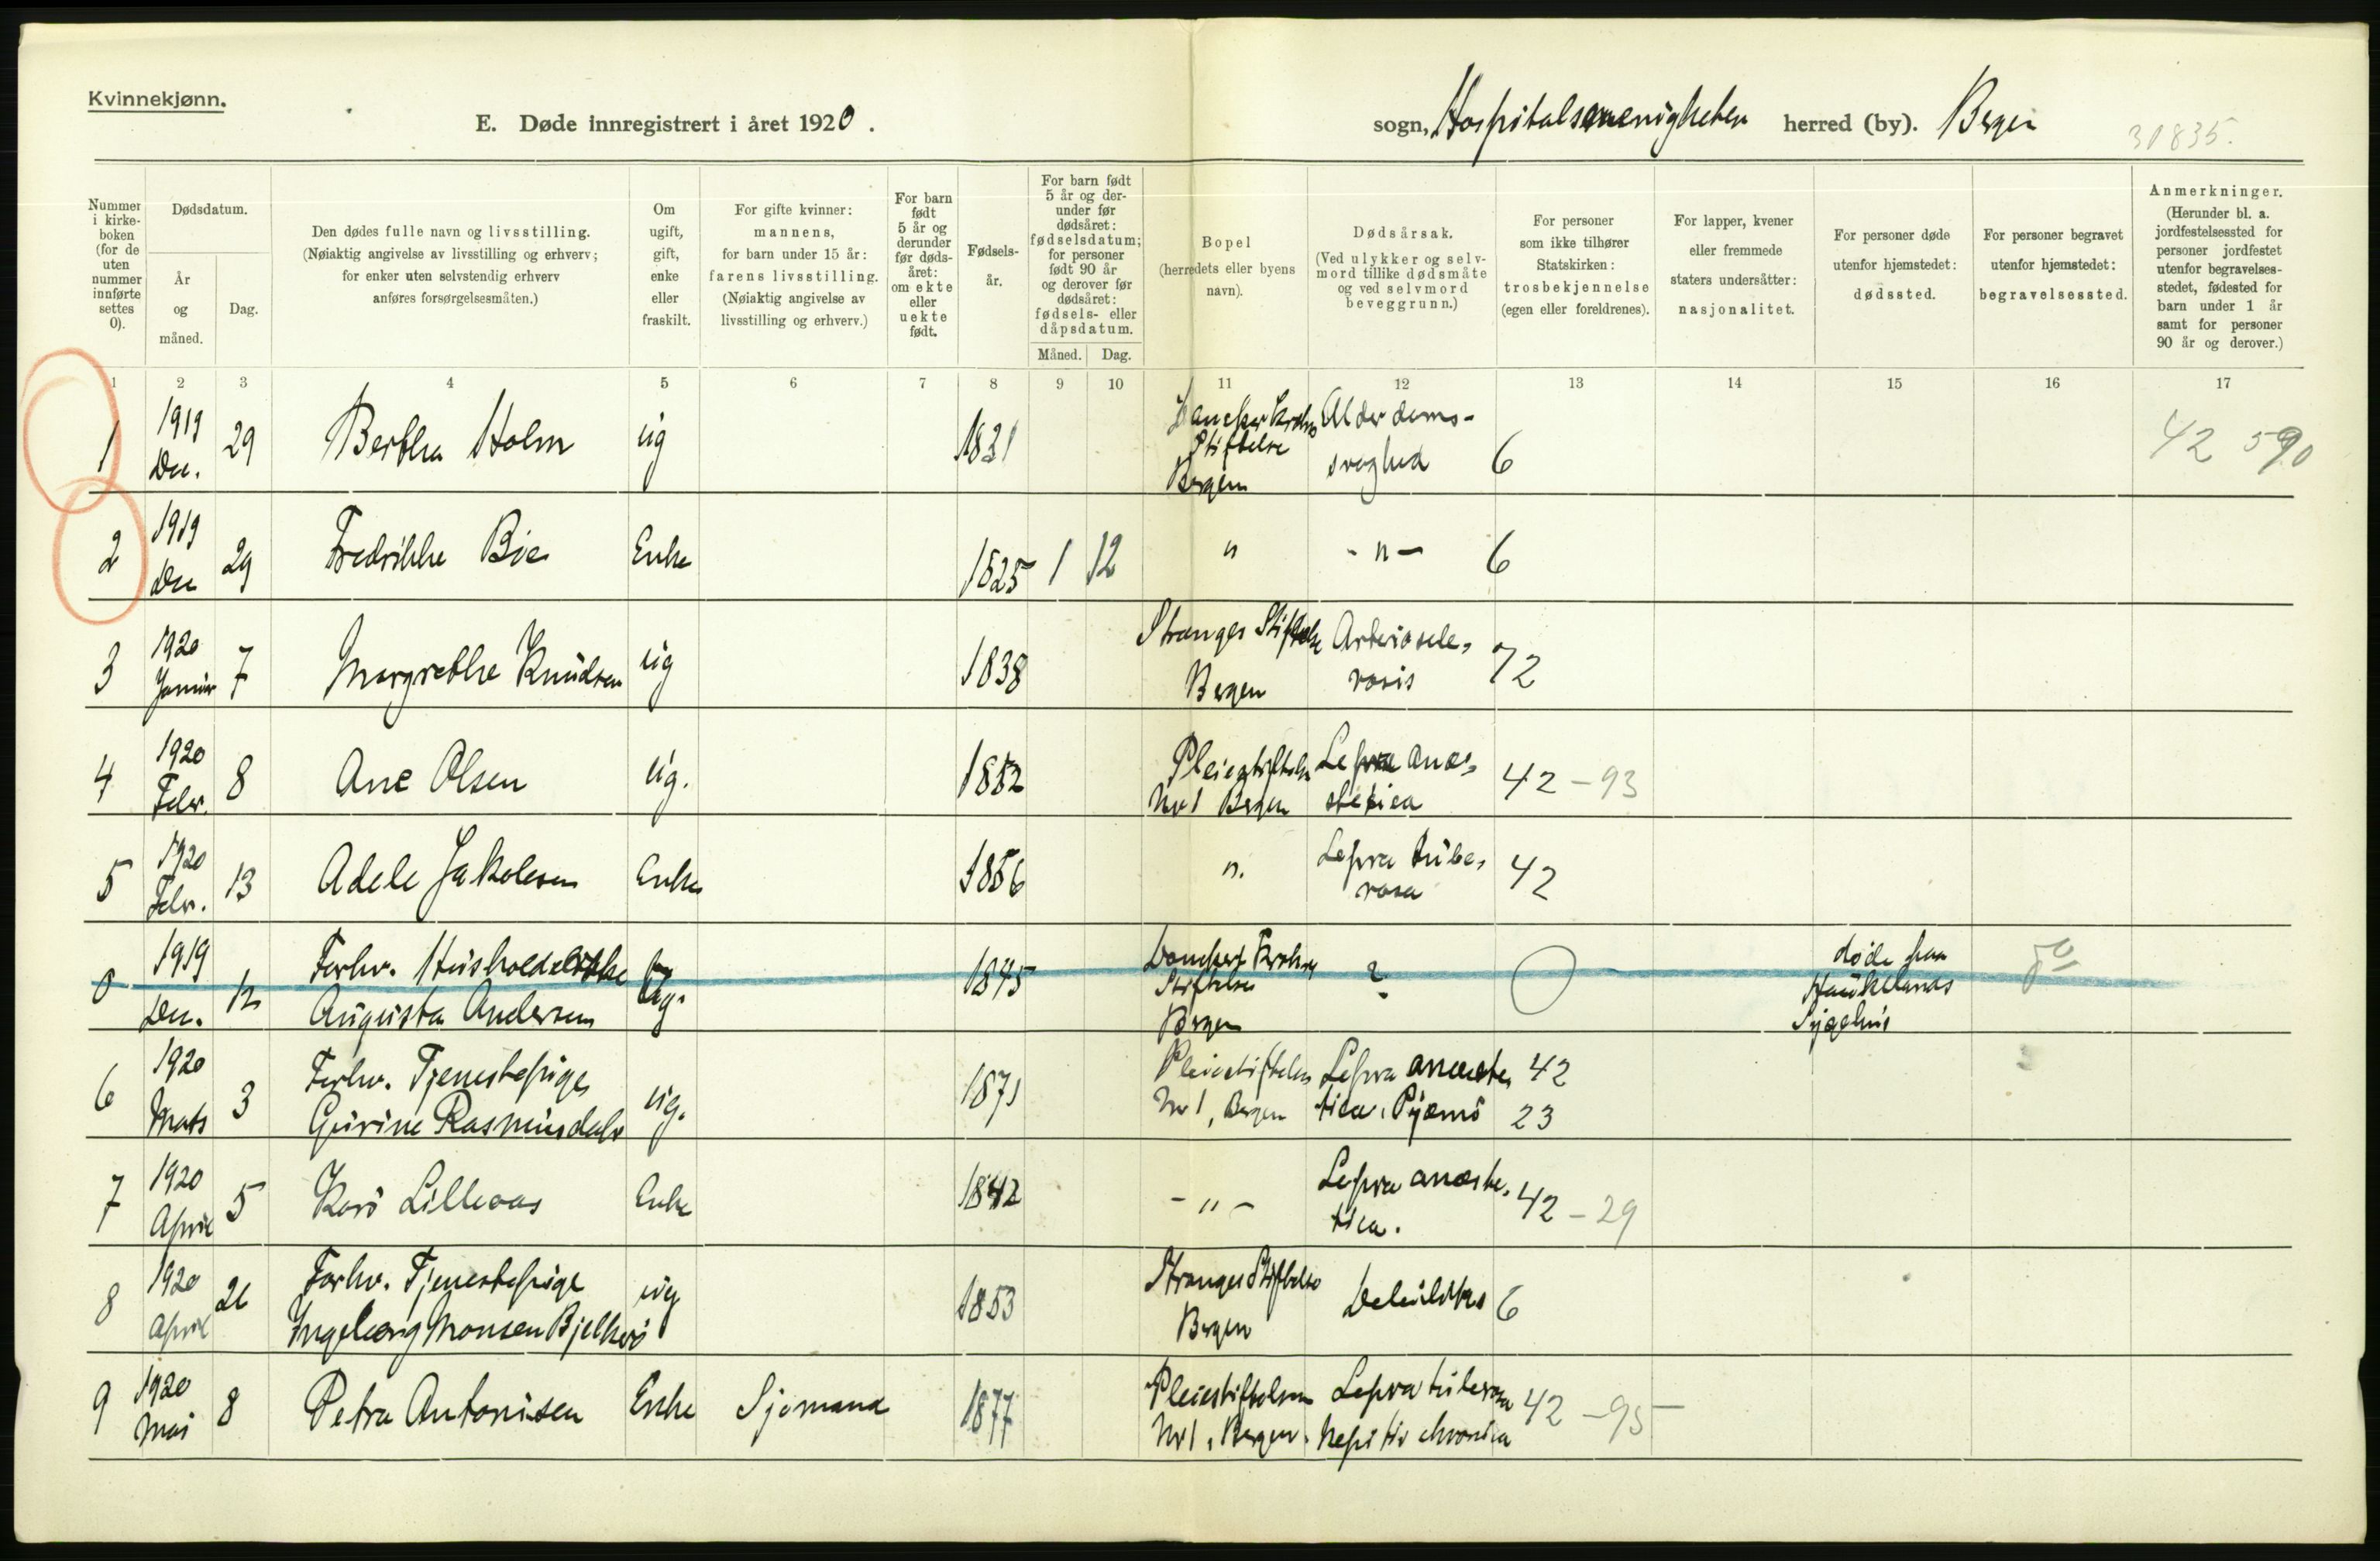 Kvinnekjønn.
E. Døde innregistrert i året 1920.
sogn, Hospitalsmenigheten herred (by). Bergen
30835.
Nummer i kirkeboken (for de uten nummer innførte settes 0).
Dødsdatum.
År og måned.
Dag.
Den dødes fulle navn og livsstilling.
(Nøiaktig angivelse av livsstilling og erhverv;
for enker uten selvstendig erhverv
anføres forsørgelsesmåten.)
Om ugift, gift, enke eller fraskilt.
For gifte kvinner:
mannens,
for barn under 15 år:
farens livsstilling.
(Nøiaktig angivelse av
livsstilling og erhverv.)
For barn født 5 år og derunder før dødsåret: om ekte eller uekte født.
Fødselsår.
For barn født 5 år og derunder før dødsåret: fødselsdatum; for personer født 90 år og derover før dødsåret: fødsels- eller dåpsdatum.
Måned. Dag.
Bopel
(herredets eller byens
navn).
Dødsårsak.
(Ved ulykker og selvmord tillike dødsmåte
og ved selvmord
beveggrunn.)
For personer
som ikke tilhører
Statskirken:
trosbekjennelse
(egen eller foreldrenes).
For lapper, kvener
eller fremmede
staters undersåtter:
nasjonalitet.
For personer døde
utenfor hjemstedet:
dødssted.
For personer begravet
utenfor hjemstedet:
begravelsessted.
Anmerkninger.
(Herunder bl. a.
jordfestelsessted for
personer jordfestet
utenfor begravelsesstedet, fødested for
barn under 1 år
samt for personer
90 år og derover.)
1 2 3 4 5 6 7 8 9 10 11 12 13 14 15 16 17
1 1919 Dec. 29 Bertha Holm ug 1821 Danckert Krohns Stiftelse Bergen Alderdomssvaghed 6 42 590
2 1919 Dec 29 Fredrikke Bøe Enke 1825 1 12 " - " - 6
3 1920 Januar 7 Margrethe Knudsen ug 1838 Stranges Stiftelse Bergen Arteriosclerosis 72
4 1920 Febr. 8 Ane Olsen ug. 1852 Pleiestiftelse Nr 1 Bergen Lepra anæstetica 42 - 93
5 1920 Febr. 13 Adele Jakobsen Enke 1856 ". Lepra tuberosa 42
0 1919 Dec. 12 Forhv. Husholderske
Augusta Andersen ug. 1845 Danckert Krohns Stiftelse Bergen ? døde paa Hauklands Sygehus
6 1920 Mars 3 Forhv. Tjenestepige
Gurine Rasmusdatr ug. 1871 Pleiestiftelsen Nr 1, Bergen Lepra anæstetica, Pyæmi 42 23
7 1920 April 5 Kari Lilleaas Enke 1842 - " - Lepra anæstetica. 42 - 29
8 1920 April 26 Forhv. Tjenestepige
Ingeborg Monsen ug 1853 Stranges Stiftelse Bergen 6
9 1920 Mai 8 Petra Antonisen Enke Sjømand 1877 Pleiestiftelsen Nr 1, Bergen. Lepra tuberosa chronica 42 - 95